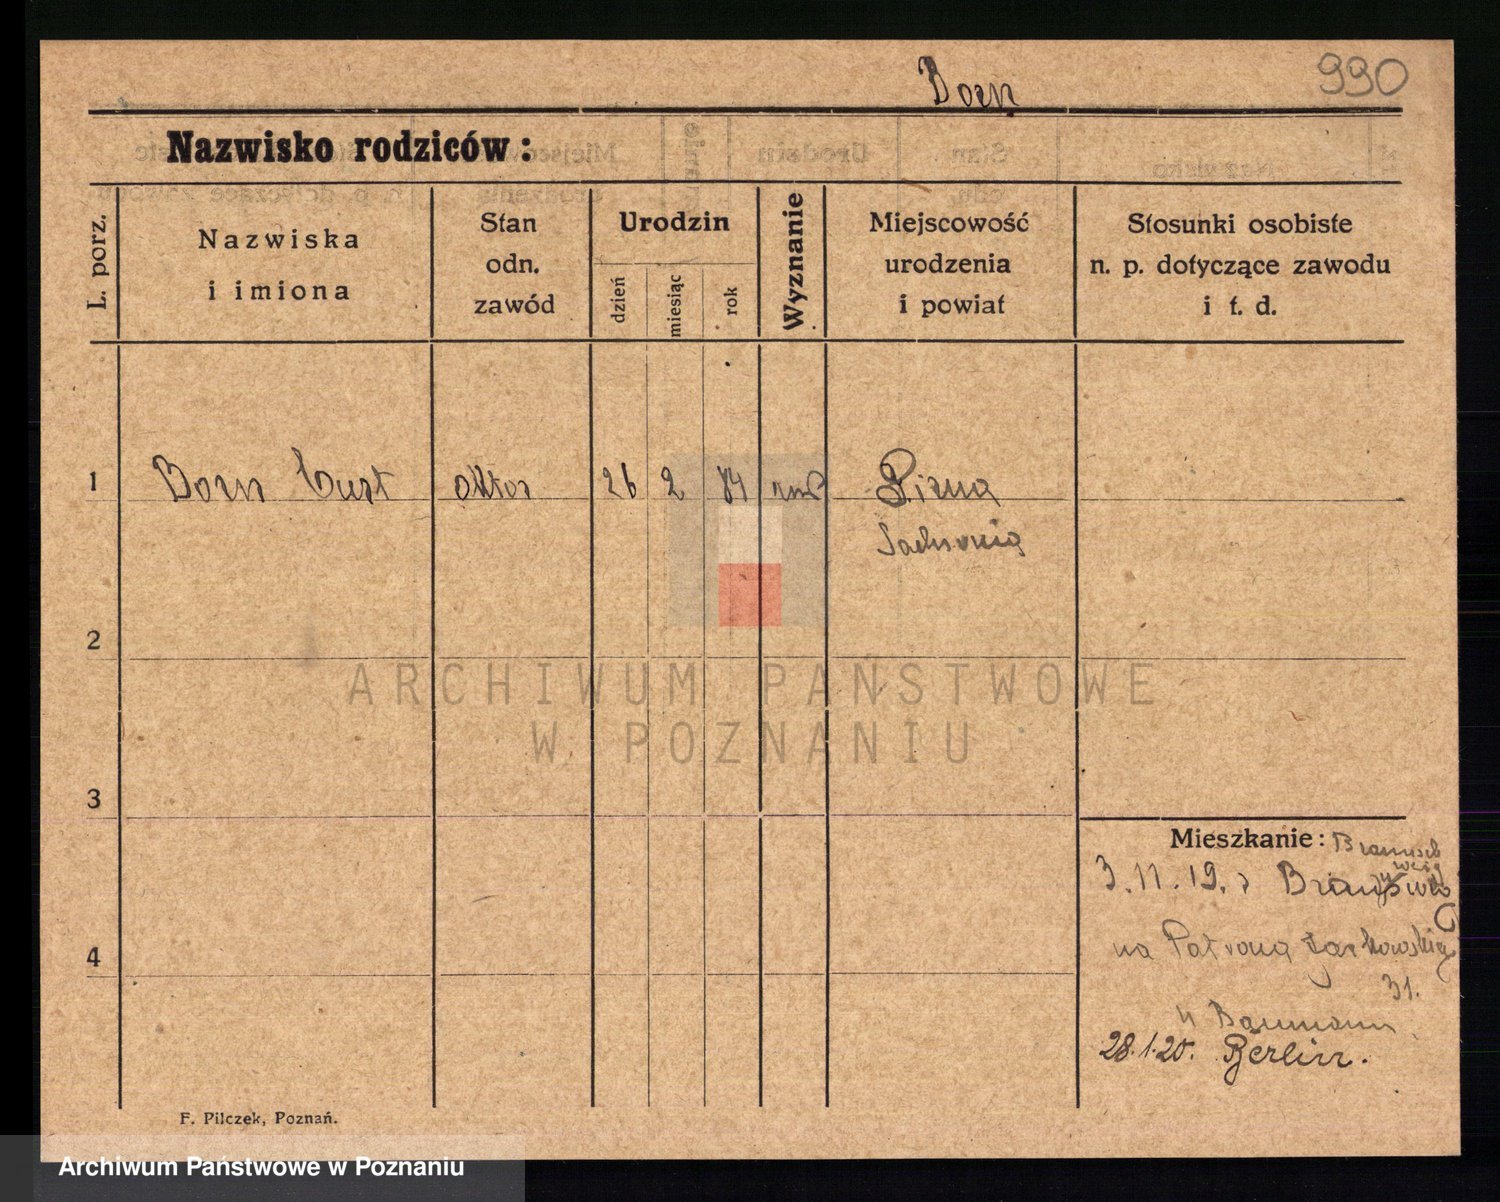 990
Born
Nazwisko rodziców:
L. porz.
Nazwiska
i imiona
Stan
odn.
zawód
Urodzin
dzień
miesiąc
rok
Wyznanie
Miejscowość
urodzenia
i powiat
Stosunki osobiste
n. p. dotyczące zawodu
i t. d.
1 Born Curt aktor 26 2 84 Pirna
Sachsonia
2
ARCHIWUM PAŃSTWOWE
W POZNANIU
3
Mieszkanie: Braunsch
weig
3.11.19. z
na Patrona Jackowskiego
31.
u Baumann
28.1.20. Berlin.
4
F. Pilczek, Poznań.
Archiwum Państwowe w Poznaniu